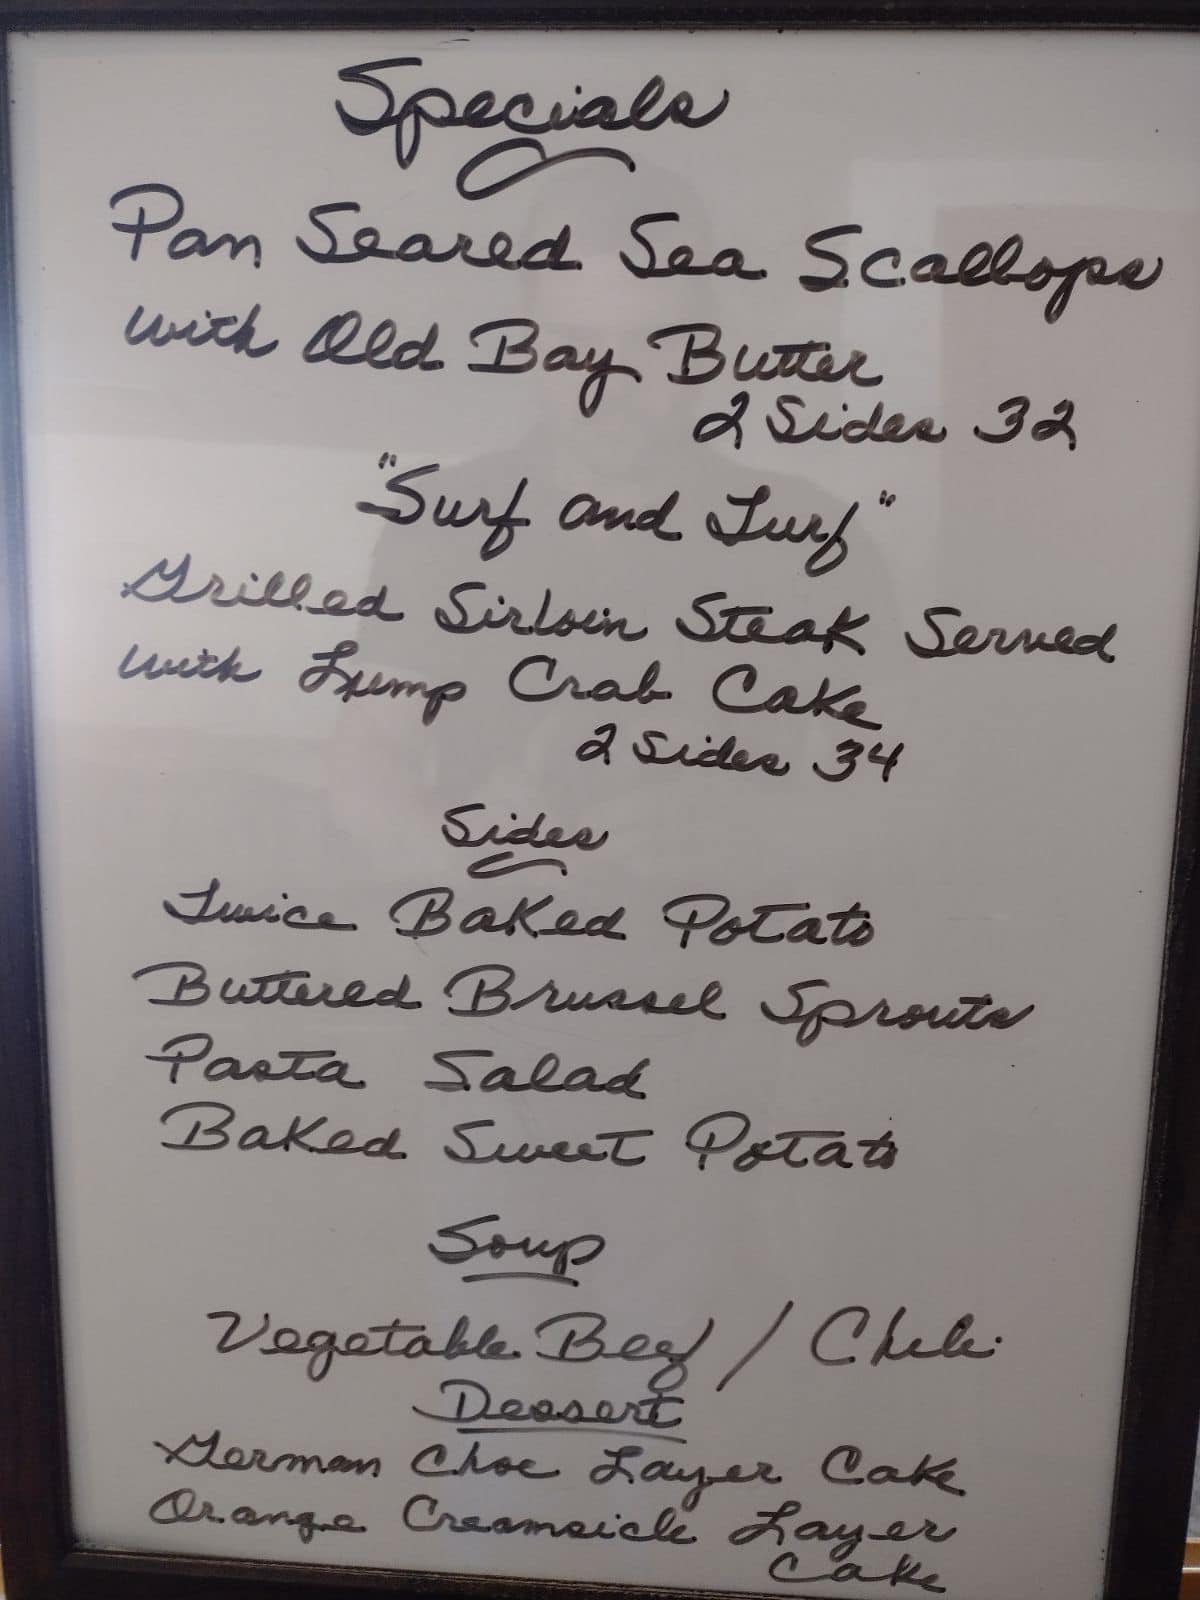 Specials
Pan Seared Sea Scallops
with Old Bay Butter
2 Sides 32
"Surf and Turf"
Grilled Sirloin Steak Served
with Lump Crab Cake
2 Sides 34
Sides
Twice Baked Potato
Buttered Brussel Sprouts
Pasta Salad
Baked Sweet Potato
Soup
Vegetable Beef / Chili
Dessert
German Choc Layer Cake
Orange Creamsicle Layer
Cake